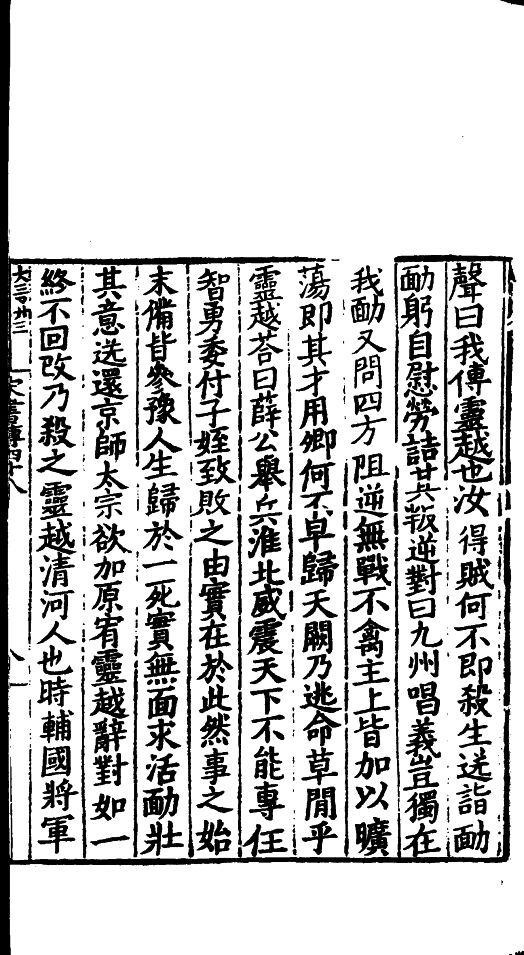 聲曰我傅靈越也汝得賊何不即殺生送詣勔
勔躬自慰勞詰其叛逆對曰九州唱義豈獨在
我勔又問四方阻逆無戰不禽主上皆加以曠
蕩即其才用卿何不早歸天闕乃逃命草閒乎
靈越荅曰薛公舉兵淮北威震天下不能專任
智勇委付子姪致敗之由實在於此然事之始
末備皆參豫人生歸於一死實無面求活勔壯
其意送還京師太宗欲加原宥靈越辭對如一
終不回改乃殺之靈越清河人也時輔國將軍
宋書傳四十八
八